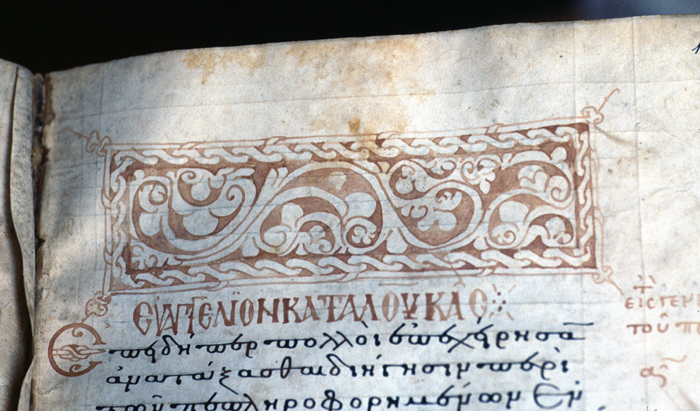 ΕΥΑΓΓΕΛΪΟΝ ΚΑΤΑ ΛΟΥΚΑC
Ἐπειδήπερ πολλοὶ ἐπεχείρησα
ἀνατάξασθαι διήγησιν περὶ
τῶν πεπληροφορημένων Ἐν
εἰς γεν
τοῦ π